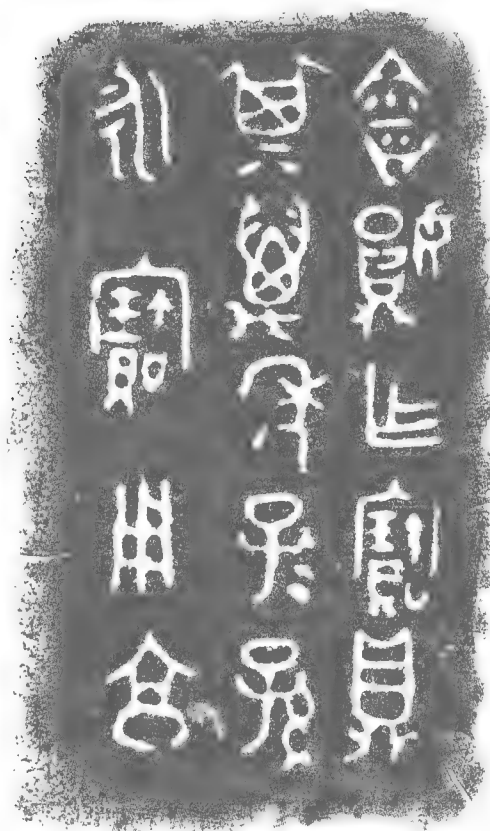 會妘乍寶鼎
其萬年子=孫
永寶用亯